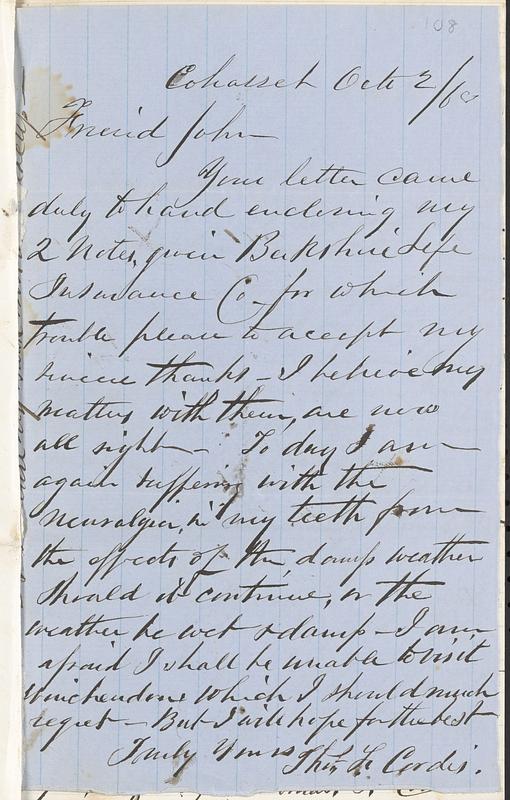 108
Cohasset Oct 2/6
Friend John
Your letter came
duly to hand enclosing my
2 Notes, given Berkshire Life
Insurance Co - for which
trouble please to accept my
sincere thanks - I believe my
matters with them, are now
all right - To day I am
again suffering with the
Neuralgia, in my teeth from
the effects of the damp weather
should it continue, or the
weather be wet & damp - I am
afraid I shall be unable to visit
Winchendon which I should much
regret - But I will hope for the best
Truly Yours Thos. F. Cordis.